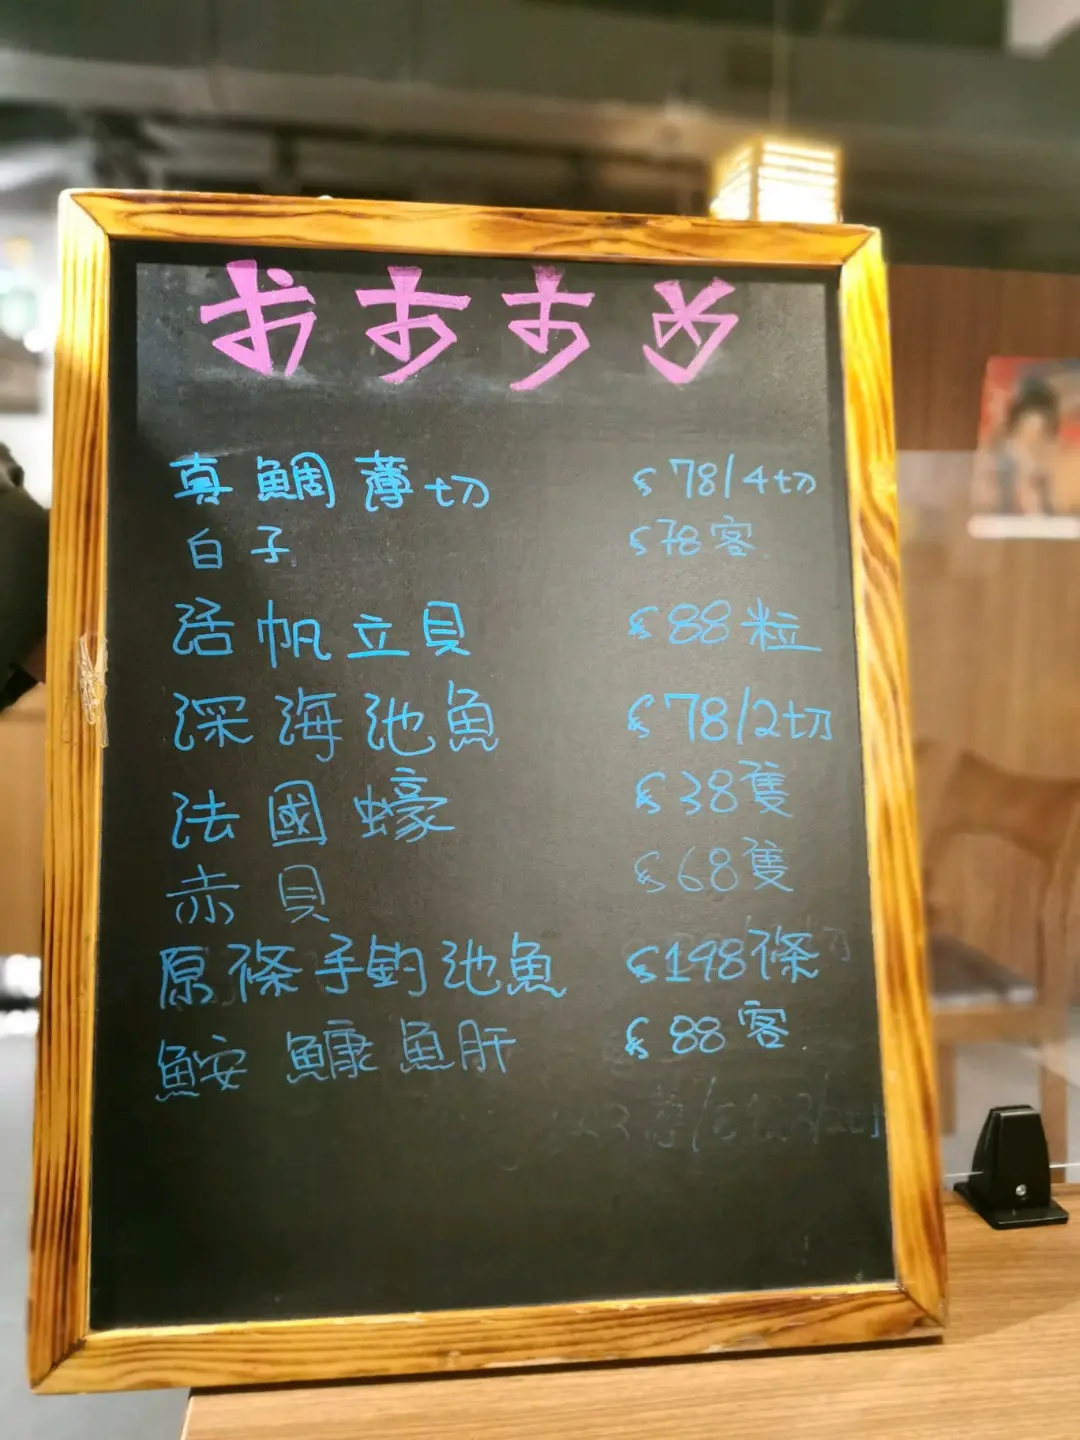 おすすめ
真鯛薄切 $78/4切
白子 $78客
活帆立貝 $88粒
深海池魚 $78/2切
法國蠔 $38隻
赤貝 $68隻
原條手釣池魚 $198條
鮟鱇魚肝 $88客